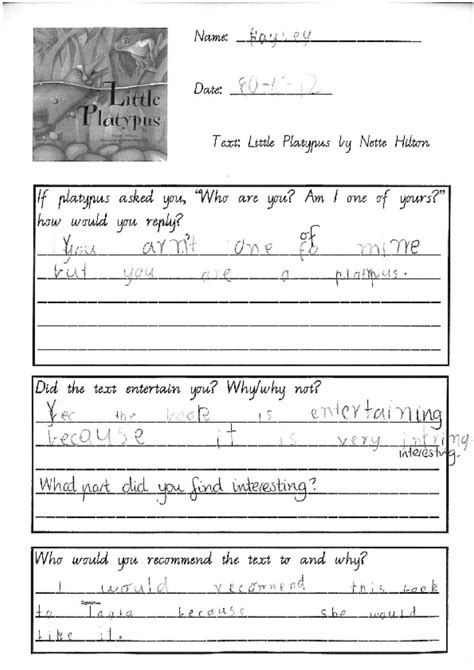 Little
Platypus
Name:
Date:
Text: Little Platypus by Nette Hilton
If platypus asked you, "Who are you? Am I one of yours?"
how would you reply?
You arn't one of mine
but you are a platpus.
Did the text entertain you? Why/why not?
Yec the book is entertaining
because it is very intring
interesting.
What part did you find interesting?
Who would you recommend the text to and why?
I would recomend this book
to because she would
like it.